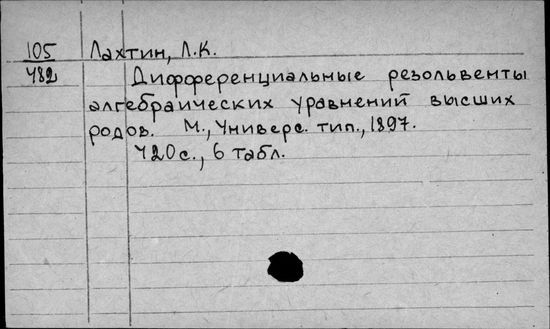 105 Лахтин, Л.К.
482 Дифференциальные резольвенты
алгебраических уравнений высших
родов. М., Универс. тип., 1897.
420 с., 6 табл.